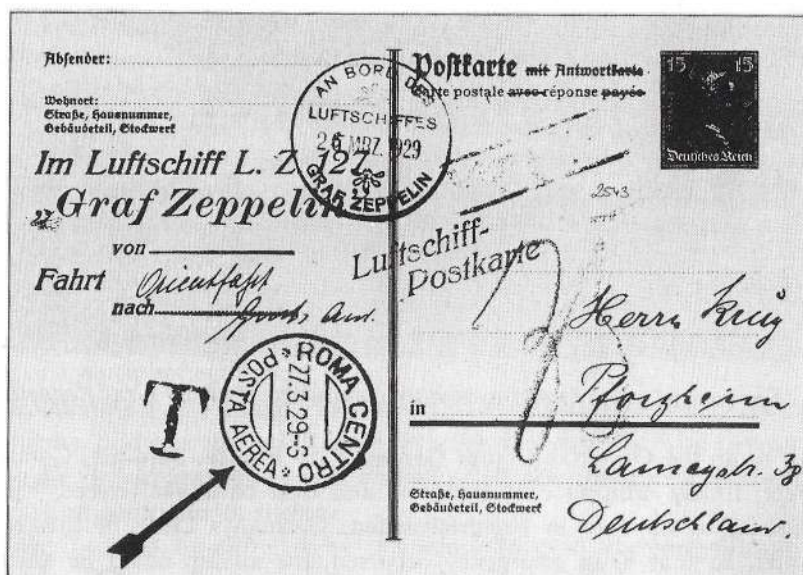 Absender:
Wohnort:
Straße, Hausnummer,
Gebäudeteil, Stockwerk
Im Luftschiff L. Z. 127
„Graf Zeppelin
von
Fahrt Orientfahrt
nach
AN BORD DES
LUFTSCHIFFES
26 MRZ. 1929
GRAF ZEPPELIN
Postkarte mit Antwortkarte
Carte postale avec réponse payée
15 15
Deutsches Reich
2543
Luftschiff-
Postkarte
T
ROMA CENTRO
27.3.29-6
POSTA AEREA
Herrn Krüg
in Pforzheim
Lameystr. 38
Straße, Hausnummer,
Gebäudeteil, Stockwerk
Deutschland.